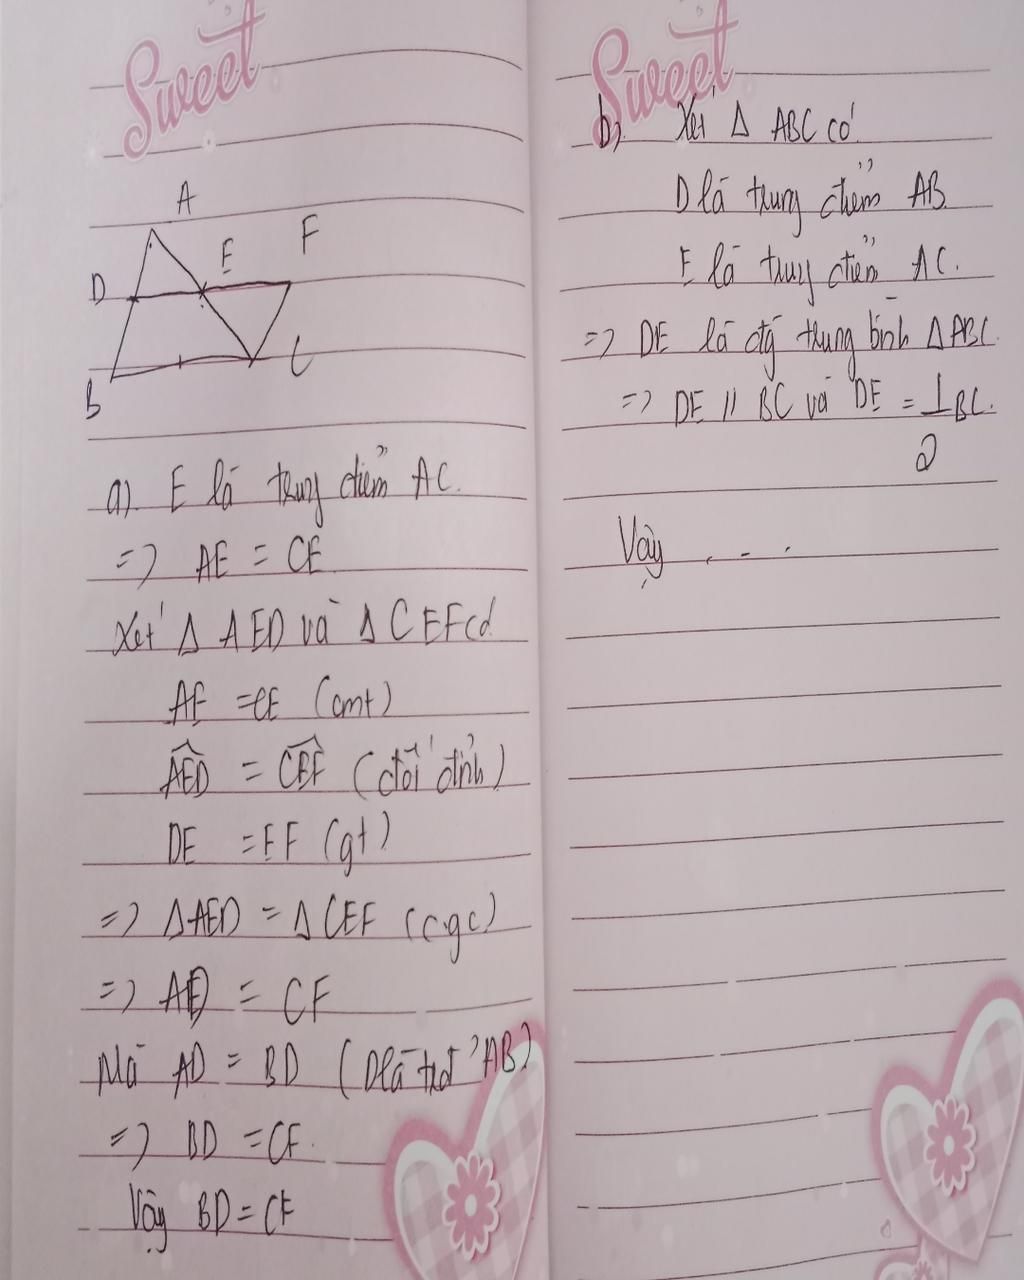 Sweet
A
E
F
D
C
B
a) E là trung điểm AC.
=> AE = CE
Xét Δ AED và Δ CEF có
AE = CE (cmt)
AED = CEF (đối đỉnh)
DE = EF (gt)
=> ΔAED = Δ CEF (c.g.c)
=> AD = CF
Mà AD = BD (D là tđ AB)
=> BD = CF.
Vậy BD = CF
Sweet
b) Xét Δ ABC có
D là trung điểm AB
E là trung điểm AC.
=> DE là đg trung bình Δ ABC.
=> DE // BC và DE = 1/2 BC.
Vậy . - .